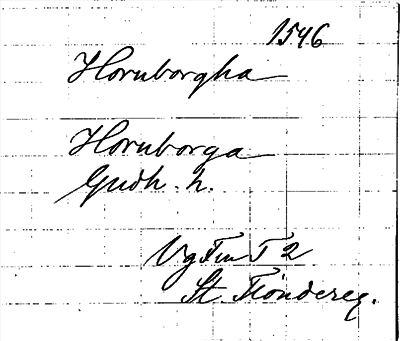 1546
Hornborgha
Hornborga
Gudh. h.
Vg Fru T 2
St. Tiondereg.